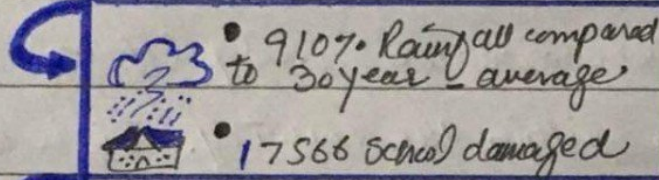 • 910%. Rainfall compared
to 30 year - average
• 17566 school damaged